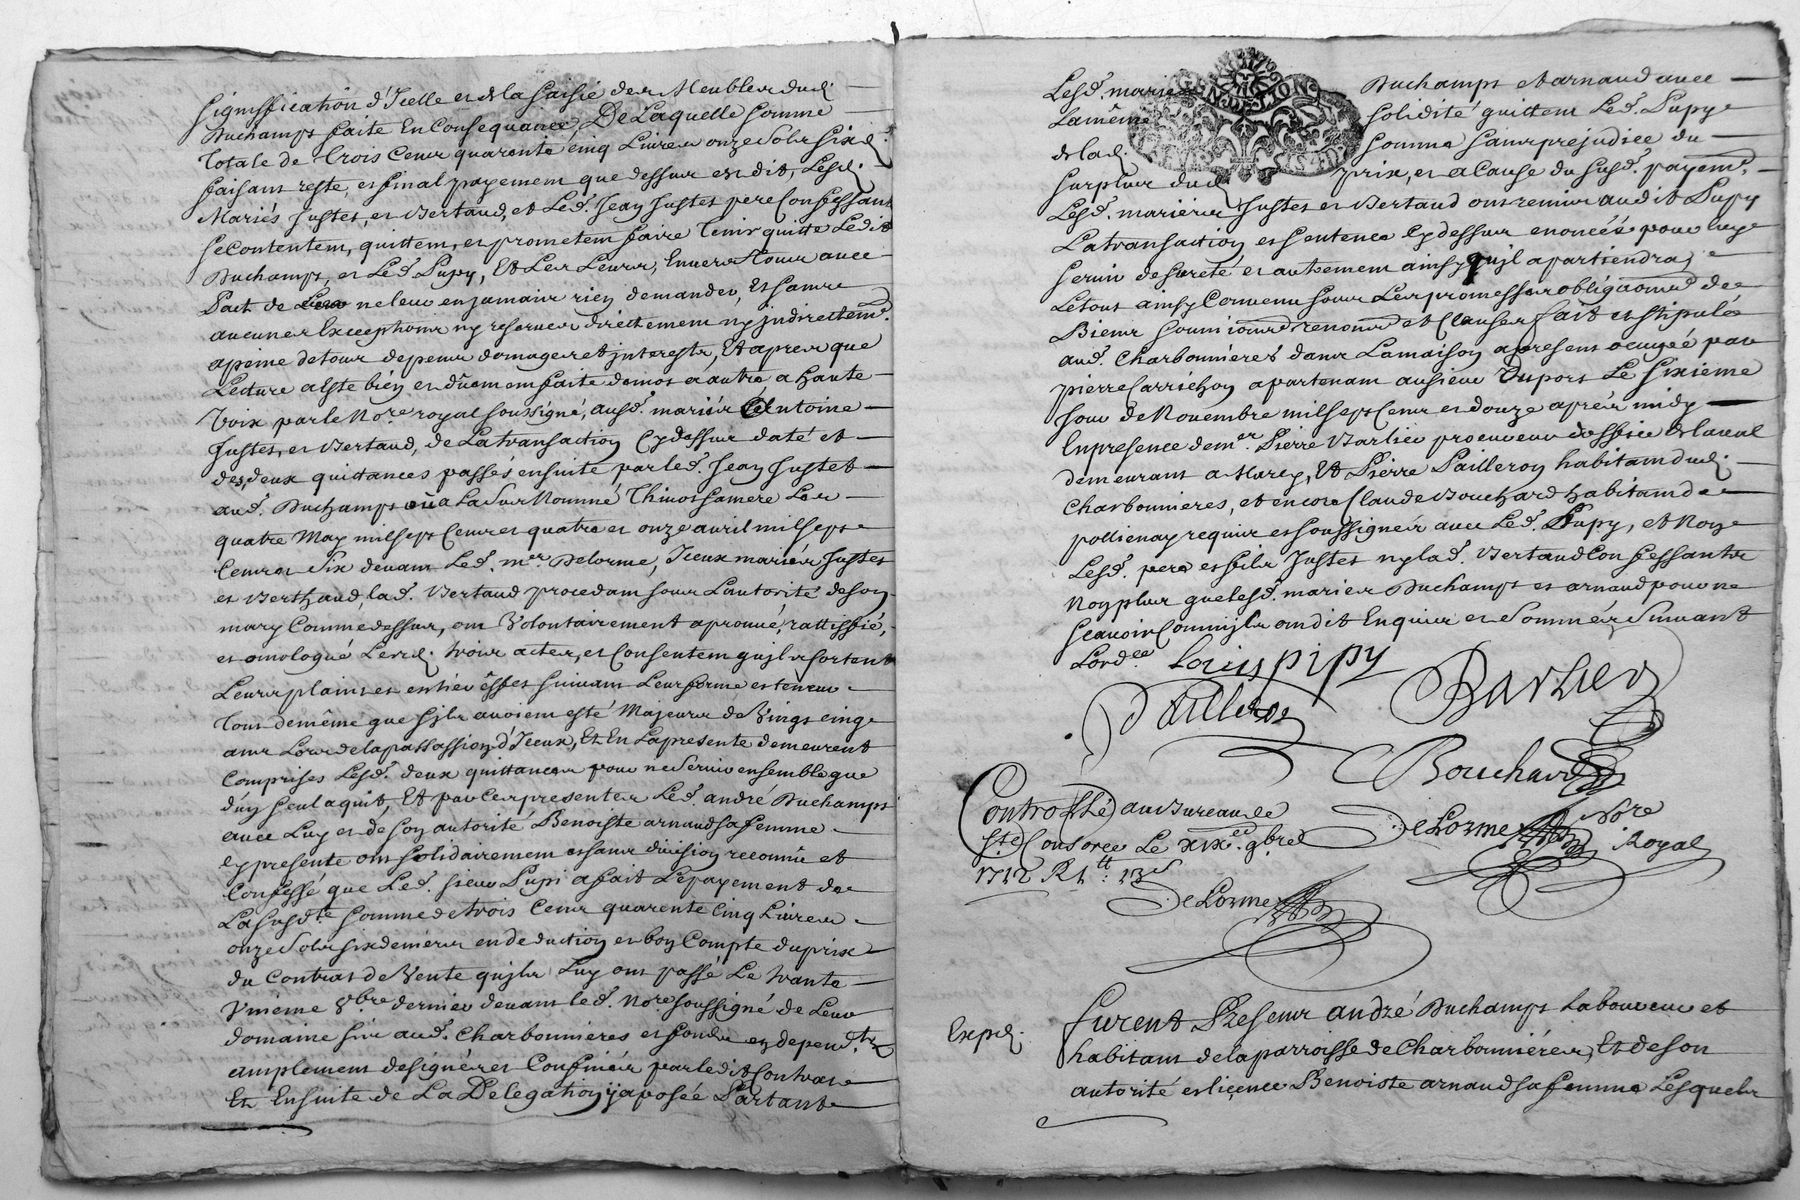 signiffication d'Icelle et de la saisie des Meubles dud.
Duchamps faite En Consequance, De Laquelle somme
totale de trois Cens quarente cinq Livres onze sols six d.
faisant reste, et final payement que dessus est dit, Lesd.
Mariés Justet, et Bertaud, et Led. Jean Justet pere Confessant
se Contentent, quittent, et prometent faire tenir quitte Ledit
Duchamps, et Led. Pupy, Et Les Leurs, Envers tous avec
Pact de ne leur en jamais rien demander, Et sans
aucunes Exceptions ny reserves directtement ny jndirectem.
apeine de tous depens domages et jnterests, Et apres que
Lecture a Esté bien et dûement faite de mot à autre a haute
Voix par le No.re royal soussigné, ausd. mariés Antoine
Justet, et Bertaud, de La transaction Cy dessus daté et
des, deux quittances passés ensuite par led. Jean Justet
aud. Duchamps où a La Sur Nommé Thinot sa mere Les
quatre May mil sept Cens et quatre et onze avril mil sept
Cens et Six devant Led. m.er Delorme, Iceux mariés Justet
et Berthaud, la d. Bertaud procedant sous L'autorité de son
mary Comme dessus, ont Volontairement aprouvé, rattiffié,
et omologué Lesd. trois actes, et Consentent qu'jls sortent
Leurs plains et entier êffet suivant Leur forme et teneur
tout de même que s'jls avoient esté Majeurs de Vingt cinq
ans Lors de la passassion d'Iceux, Et En La presente demeurent
Comprises Lesd. deux quittances pour ne Servir ensemble que
d'un seul aquit, Et par Ces presentes Led. andré Duchamps
avec Luy et de son autorité Benoiste arnaud sa femme
cy presente ont solidairement et sans division reconnû et
Confessé que Led. sieur Pupi a fait Le payement de
La susd.te somme de trois Cens quarente Cinq Livres
onze Sols six deniers en deduction et bon Compte du prix
du Contrat de Vente qu'jls Luy ont passé Le trante
Vnième 8.bre dernier devant led. No.re soussigné de Leur
domaine sis aud. Charbonnieres et fonds en depend.ts
amplement designés et Confinés par ledit Contrat
Et Ensuite de La Delegation y aposée Partant
Lesd. mariés Duchamps et arnaud avec
La même solidité quittent Led. Pupy
de lad. somme sans prejudice du
surplus dud. prix, et a Cause du susd. payem.
Lesd. mariés Justet et Bertaud ont remis audit Pupy
La transaction et sentence Cy dessus enoncées pour luy
servir de sureté et autrement ainsy qu'jl apartiendra
Le tout ainsy Convenu sous Les promesses obligations de
Biens soumissions renons et Clauses fait et stipulé
aud. Charbonnieres dans La maison apresent occupée par
pierre Carrichon apartenant au sieur Duport Le sixieme
jour de Novembre mil sept Cens et douze aprés midy
En presence de m.er Pierre Barlier procureur
demeurant a Marcy, Et Pierre Pailleron habitant dud.
Charbonnieres, et encore Claude Bouchard habitant de
pollienay requis et soussignés avec Led. Pupy, et Non
Lesd. pere et fils Justet ny la d. Bertaud Confessants
Non plus que lesd. mariés Duchamps et arnaud pour ne
scavoir Comm'jls ont dit Enquis et Sommés Suivant
Lord.ce
Louis pipy
Barlier
Pailleron
Bouchard
Controllé au Bureau de
S.te Consorce Le XIX.e 9bre
1712 R 1.tt : 13 s
DeLorme
DeLorme Nore
Royal
Exped.
furent Presens andré Duchamps Laboureur et
habitant de la parroisse de Charbonniéres, Et de son
autorité et licence Benoiste arnaud sa femme Lesquels